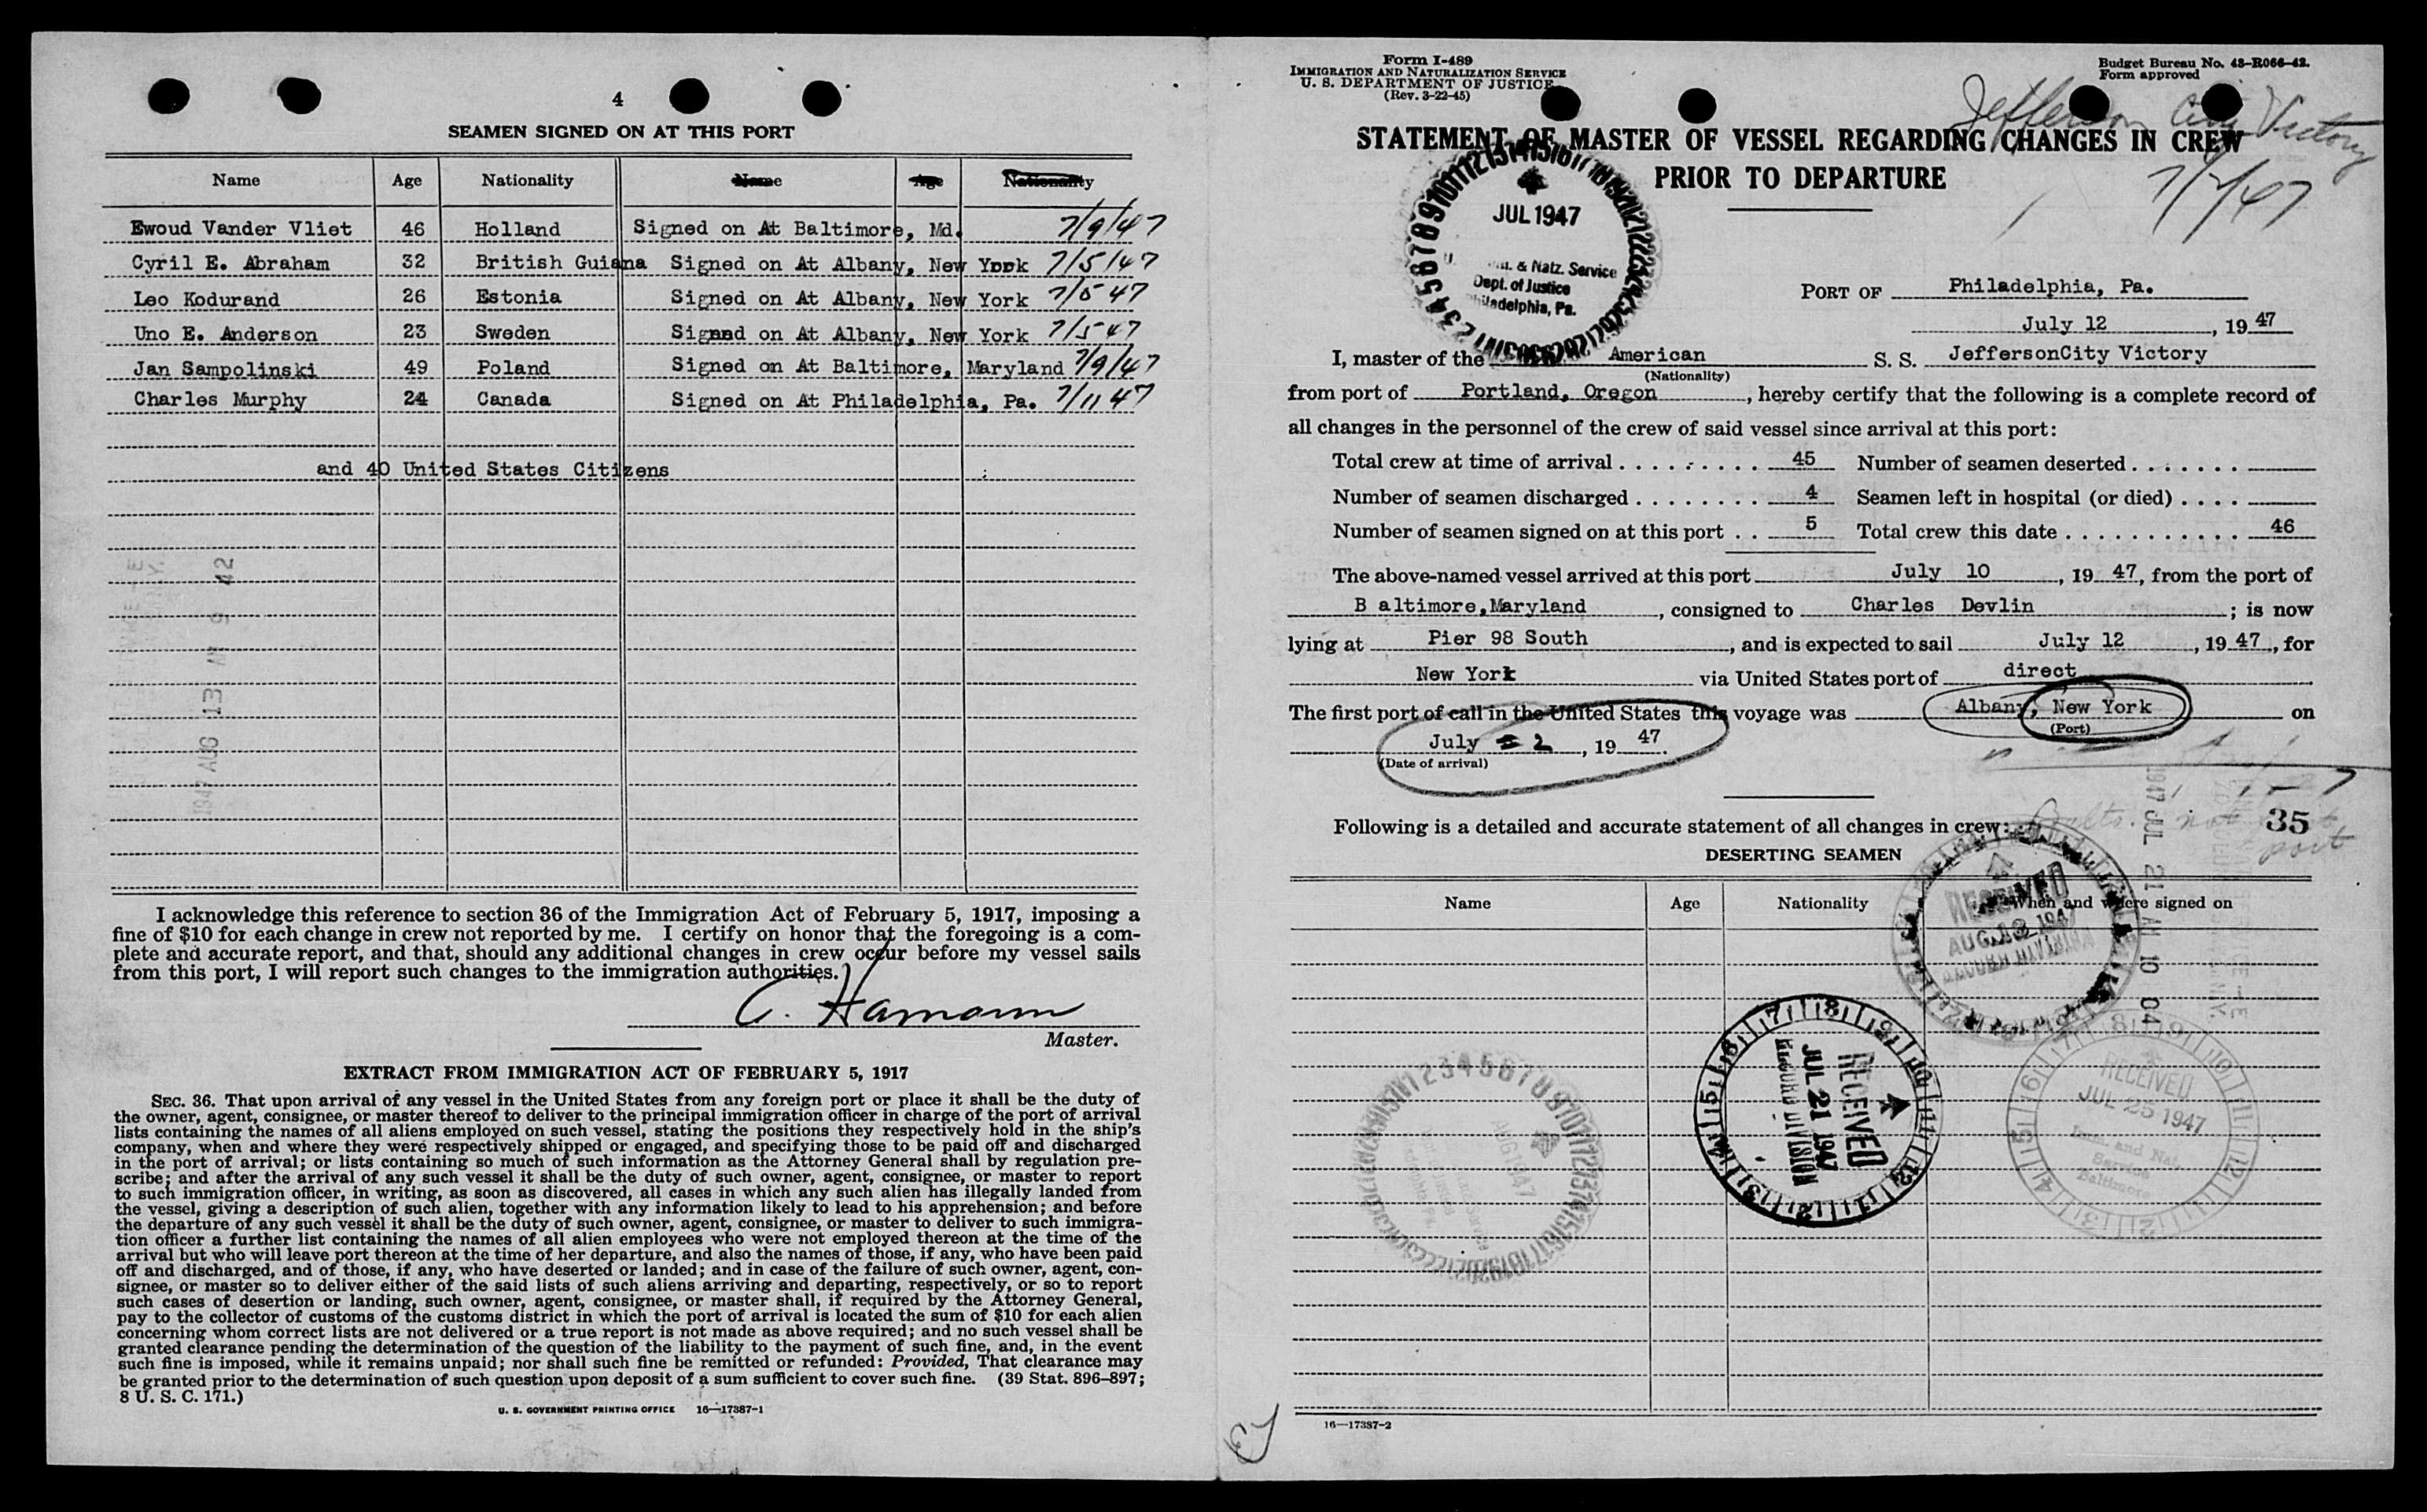 4
SEAMEN SIGNED ON AT THIS PORT
Name Age Nationality Name Age Nationality
Ewoud Vander Vliet 46 Holland Signed on At Baltimore, Md. 7/9/47
Cyril E. Abraham 32 British Guiana Signed on At Albany, New Yook 7/5/47
Leo Kodurand 26 Estonia Signed on At Albany, New York 7/5 47
Uno E. Anderson 23 Sweden Signed on At Albany, New York 7/5 47
Jan Sampolinski 49 Poland Signed on At Baltimore, Maryland 7/9/47
Charles Murphy 24 Canada Signed on At Philadelphia, Pa. 7/11 47
and 40 United States Citizens
1947 AUG 13 AM 9 42
I acknowledge this reference to section 36 of the Immigration Act of February 5, 1917, imposing a
fine of $10 for each change in crew not reported by me. I certify on honor that the foregoing is a com-
plete and accurate report, and that, should any additional changes in crew occur before my vessel sails
from this port, I will report such changes to the immigration authorities.
C. Hamann
Master.
EXTRACT FROM IMMIGRATION ACT OF FEBRUARY 5, 1917
SEC. 36. That upon arrival of any vessel in the United States from any foreign port or place it shall be the duty of
the owner, agent, consignee, or master thereof to deliver to the principal immigration officer in charge of the port of arrival
lists containing the names of all aliens employed on such vessel, stating the positions they respectively hold in the ship's
company, when and where they were respectively shipped or engaged, and specifying those to be paid off and discharged
in the port of arrival; or lists containing so much of such information as the Attorney General shall by regulation pre-
scribe; and after the arrival of any such vessel it shall be the duty of such owner, agent, consignee, or master to report
to such immigration officer, in writing, as soon as discovered, all cases in which any such alien has illegally landed from
the vessel, giving a description of such alien, together with any information likely to lead to his apprehension; and before
the departure of any such vessel it shall be the duty of such owner, agent, consignee, or master to deliver to such immigra-
tion officer a further list containing the names of all alien employees who were not employed thereon at the time of the
arrival but who will leave port thereon at the time of her departure, and also the names of those, if any, who have been paid
off and discharged, and of those, if any, who have deserted or landed; and in case of the failure of such owner, agent, con-
signee, or master so to deliver either of the said lists of such aliens arriving and departing, respectively, or so to report
such cases of desertion or landing, such owner, agent, consignee, or master shall, if required by the Attorney General,
pay to the collector of customs of the customs district in which the port of arrival is located the sum of $10 for each alien
concerning whom correct lists are not delivered or a true report is not made as above required; and no such vessel shall be
granted clearance pending the determination of the question of the liability to the payment of such fine, and, in the event
such fine is imposed, while it remains unpaid; nor shall such fine be remitted or refunded: Provided, That clearance may
be granted prior to the determination of such question upon deposit of a sum sufficient to cover such fine. (39 Stat. 896–897;
8 U. S. C. 171.)
U. S. GOVERNMENT PRINTING OFFICE 16—17387-1
Form I-489
IMMIGRATION AND NATURALIZATION SERVICE
U. S. DEPARTMENT OF JUSTICE
(Rev. 3-22-45)
Budget Bureau No. 43-R066-42.
Form approved
Jefferson City Victory
7/2/47
STATEMENT OF MASTER OF VESSEL REGARDING CHANGES IN CREW
PRIOR TO DEPARTURE
JUL 1947
& Natz. Service
Dept. of Justice
Philadelphia, Pa.
PORT OF Philadelphia, Pa.
July 12, 19 47
I, master of the American S. S. JeffersonCity Victory
(Nationality)
from port of Portland, Oregon, hereby certify that the following is a complete record of
all changes in the personnel of the crew of said vessel since arrival at this port:
Total crew at time of arrival 45 Number of seamen deserted
Number of seamen discharged 4 Seamen left in hospital (or died)
Number of seamen signed on at this port 5 Total crew this date 46
The above-named vessel arrived at this port July 10, 19 47, from the port of
B altimore,Maryland, consigned to Charles Devlin; is now
lying at Pier 98 South, and is expected to sail July 12, 19 47, for
New York via United States port of direct
The first port of call in the United States this voyage was Albany, New York on
(Port)
July 2, 19 47.
(Date of arrival)
Balto. not
port
35
1947 JUL 21 AM 10 04
Following is a detailed and accurate statement of all changes in crew:
DESERTING SEAMEN
Name Age Nationality When and where signed on
RECEIVED
AUG 13 194
RECORD DIVISION
RECEIVED
JUL 21 1947
RECORD DIVISION
RECEIVED
JUL 25 1947
Imm. and Nat.
Service
Baltimore
AUG 1947
16—17387-2